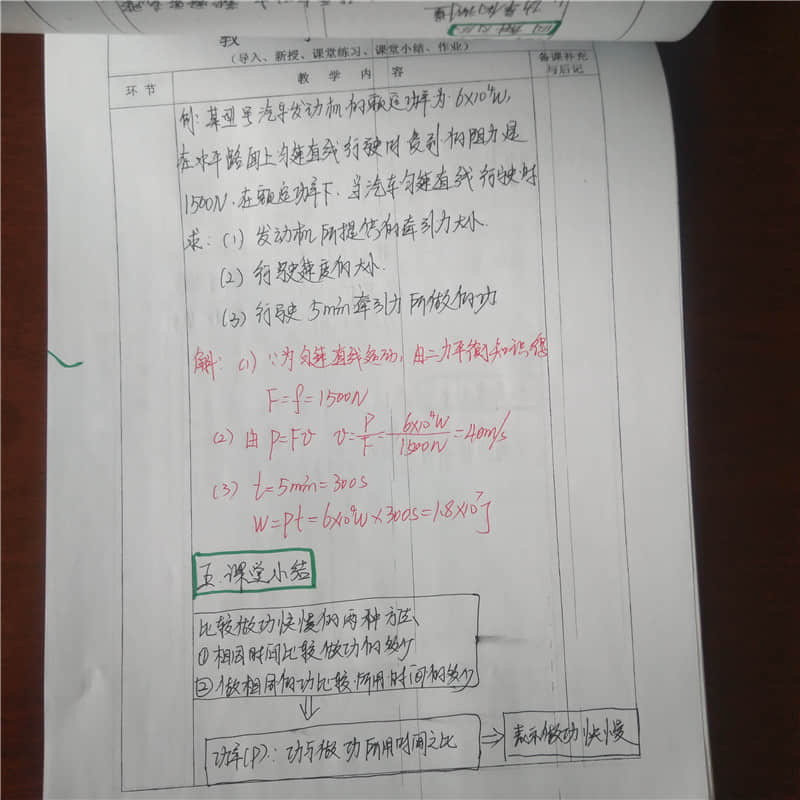 教
(导入、新授、课堂练习、课堂小结、作业)
环 节
教 学 内 容
备课补充
与后记
例:某型号汽车发动机的额定功率为 6×10⁴W,
在水平路面上匀速直线行驶时受到的阻力是
1500N,在额定功率下,当汽车匀速直线行驶时
求:(1) 发动机所提供的牵引力大小.
(2) 行驶速度的大小.
(3) 行驶 5min 牵引力所做的功
解: (1) ∵为匀速直线运动,由二力平衡知识得
F=f=1500N
(2) 由 P=Fv v=P/F=6×10⁴W/1500N=40m/s
(3) t=5min=300s
W=Pt=6×10⁴W×300s=1.8×10⁷J
五.课堂小结
比较做功快慢的两种方法、
①相同时间比较做功的多少
②做相同的功比较所用时间的多少
功率(P):功与做功所用时间之比
表示做功快慢